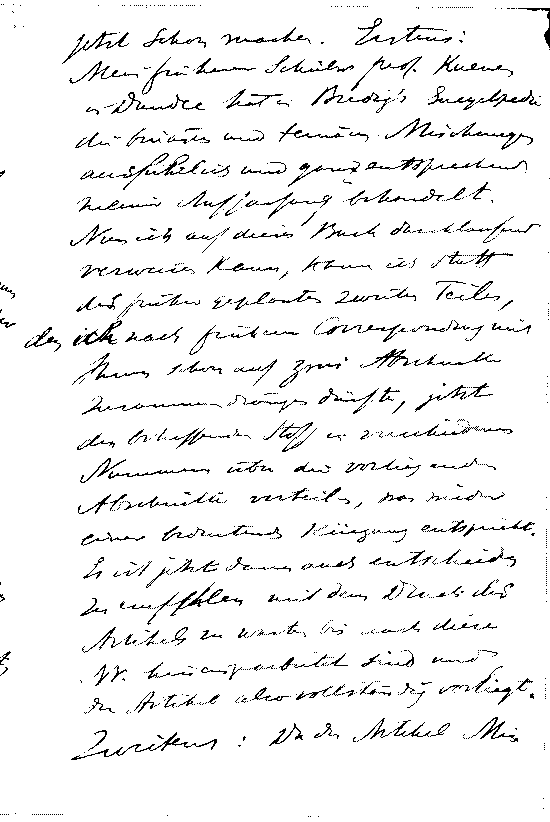 jetzt schon machen. Erstens:
Mein früherer Schüler Prof. Kuenen
in Dundee hat in Bredig's Encyclopedie
die binären und ternären Mischungen
ausführlich und ganz entsprechend
meiner Auffassung behandelt.
Nun ich auf dieses Buch durchlaufend
verweisen kann, kann ich statt
des früher geplanten zweiten Teiles,
den ich nach früherer Correspondenz mit
Ihnen schon auf zwei Abschnitte
zusammendrängen dürfte, jetzt
den betreffenden Stoff in verschiedenen
Nummern über die vorliegenden
Abschnitte verteilen, was wieder
einer bedeutenden Kürzung entspricht.
Es ist jetzt dann auch entschieden
zu empfehlen mit dem Druck des
Artikels zu warten bis auch diese
hineingearbeitet sind und
der Artikel also vollständig vorliegt.
Zweitens: Da der Artikel